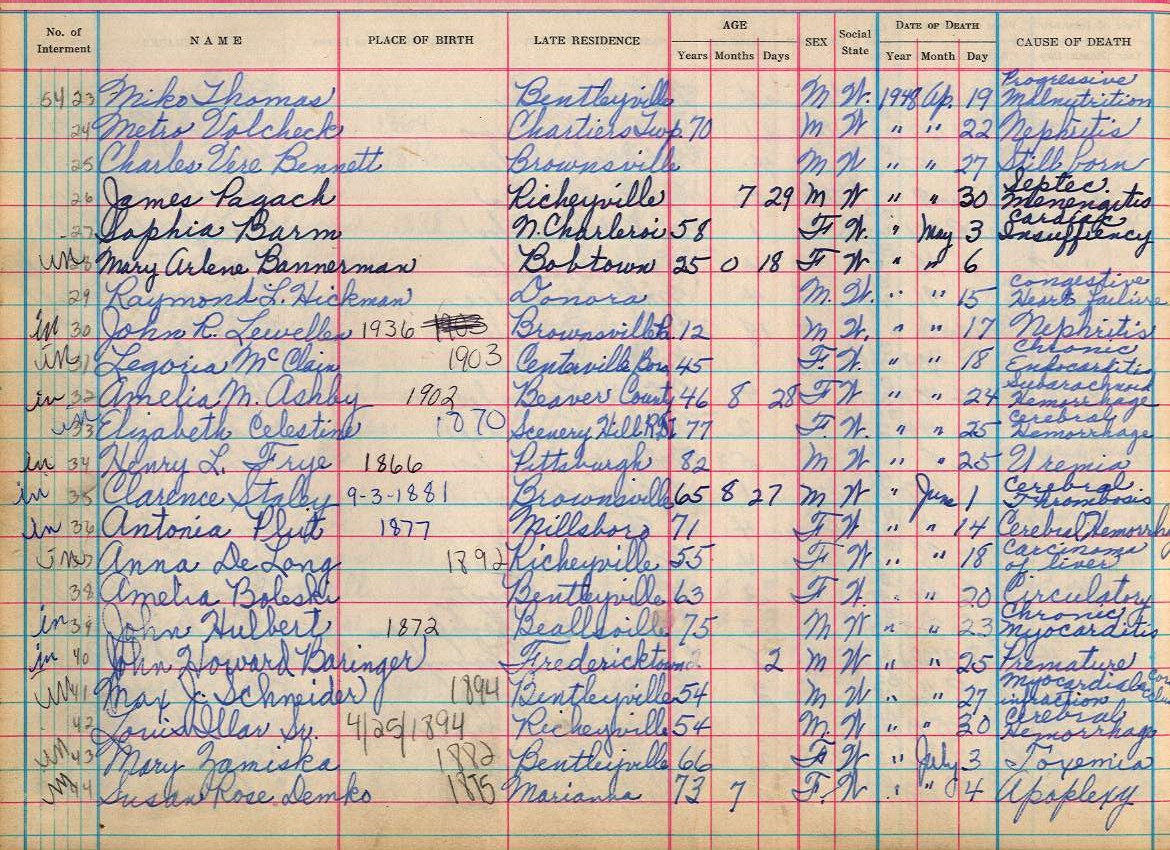 No. of Interment NAME PLACE OF BIRTH LATE RESIDENCE AGE Years Months Days SEX Social State DATE OF DEATH Year Month Day CAUSE OF DEATH
5423 Mike Thomas Bentleyville M W. 1948 Ap. 19 Progressive Malnutrition
24 Metro Volcheck Chartiers Twp. 70 M W " " 22 Nephritis
25 Charles Vere Bennett Brownsville M W " " 27 Stillborn
26 James Pagach Richeyville 7 29 M W " " 30 Septec. Menengitis
27 Sophia Barm N. Charleroi 58 F W. " May 3 Cardiac Insuffiency
28 Mary Arlene Bannerman Bobtown 25 0 18 F W " " 6
29 Raymond L. Hickman Donora M. W. " " 15 Congestive Heart Failure
in 30 John R. Lewellen 1936 1903 Brownsville 12 M W. " " 17 Nephritis
31 Legoria McClain 1903 Centerville Boro 45 F. W. " " 18 Chronic Endocarditis
in 32 Amelia M. Ashby 1902 Beaver County 46 8 28 F W " " 24 Subarachnoid Hemorrhage
33 Elizabeth Celestine 1870 Scenery Hill R.D.1 77 F W. " " 25 Cerebral Hemorrhage
in 34 Henry L. Frye 1866 Pittsburgh 82 M W " " 25 Uremia
in 35 Clarence Stalby 9-3-1881 Brownsville 65 8 27 M W " June 1 Cerebral Thrombosis
in 36 Antonia Plut 1877 Millsboro 71 F W " " 14 Cerebral Hemorrh
37 Anna DeLong 1892 Richeyville 55 F W. " " 18 Carcinoma of liver
38 Amelia Boleski Bentleyville 63 F W. " " 20 Circulatory
in 39 John Hulbert 1872 Beallsville 75 M W " " 23 Chronic Myocarditis
in 40 John Howard Baringer Fredericktown 2 M W " " 25 Premature
41 Max J. Schneider 1894 Bentleyville 54 M W " " 27 Myocardial infraction
42 Louis Ollar Sr. 4/25/1894 Richeyville 54 M. W. " " 30 Cerebral Hemorrhage
43 Mary Zamiska 1882 Bentleyville 66 F W " July 3 Toxemia
44 Susan Rose Demko 1875 Marianna 73 7 F. W " " 4 Apoplexy